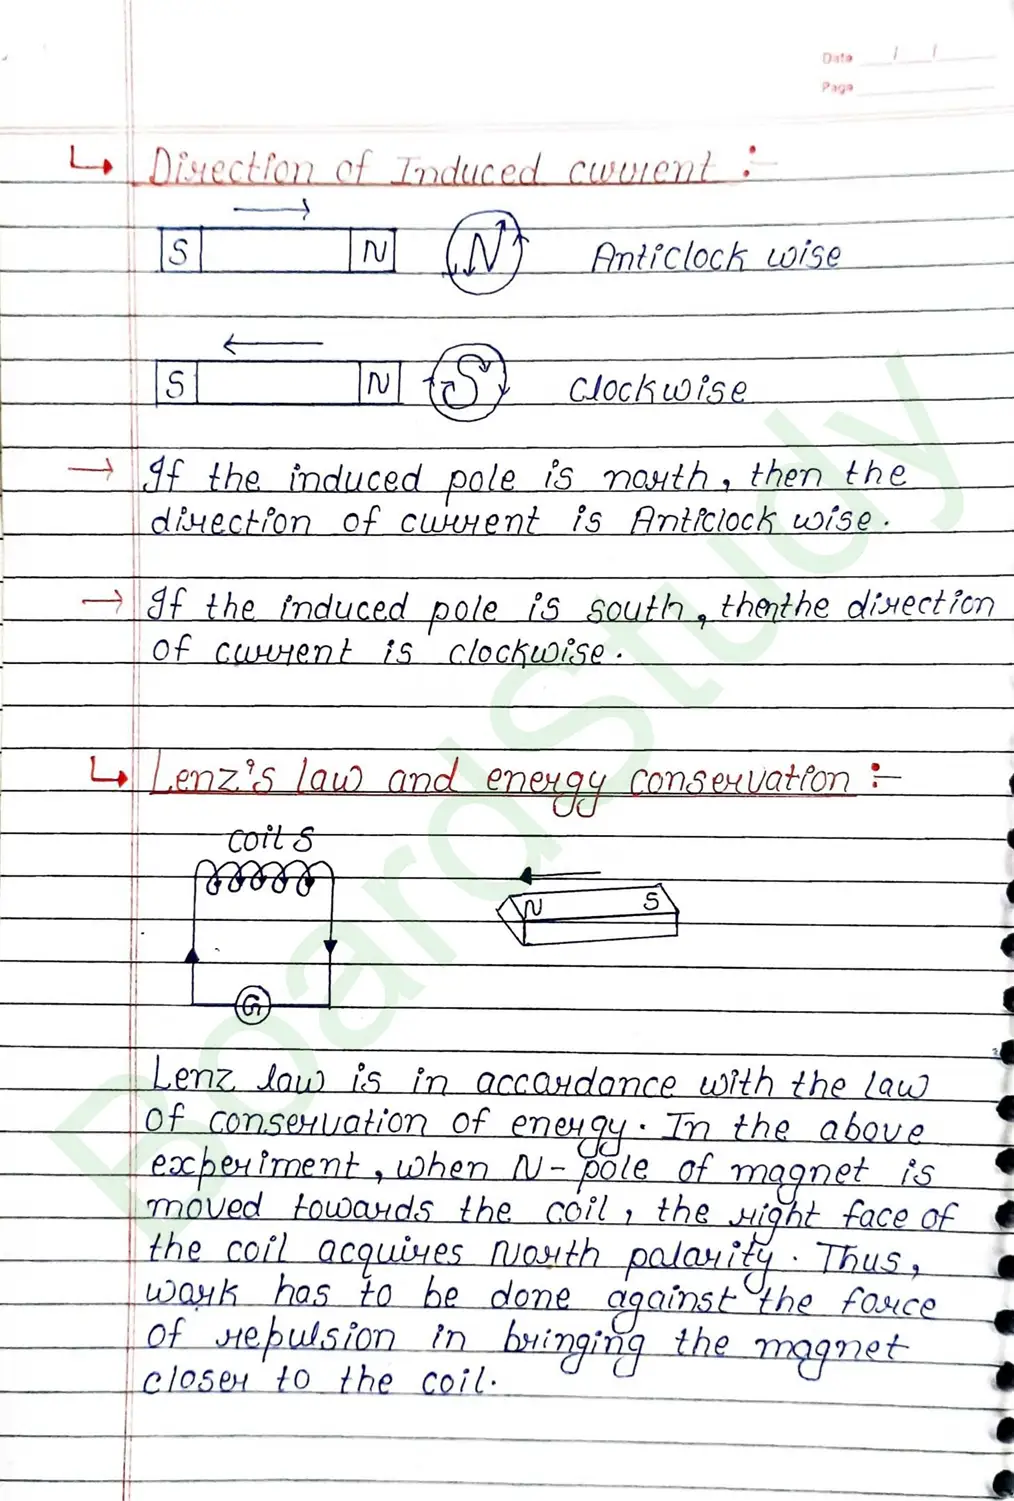 Date
Page
Direction of Induced current :-
S N N Anticlock wise
S N S Clockwise
→ If the induced pole is north, then the
direction of current is Anticlock wise.
→ If the induced pole is south, then the direction
of current is clockwise.
Lenz's law and energy conservation :-
coil S
N S
G
Lenz law is in accordance with the law
of conservation of energy. In the above
experiment, when N-pole of magnet is
moved towards the coil, the right face of
the coil acquires North polarity. Thus,
work has to be done against the force
of repulsion in bringing the magnet
closer to the coil.
BoardStudy